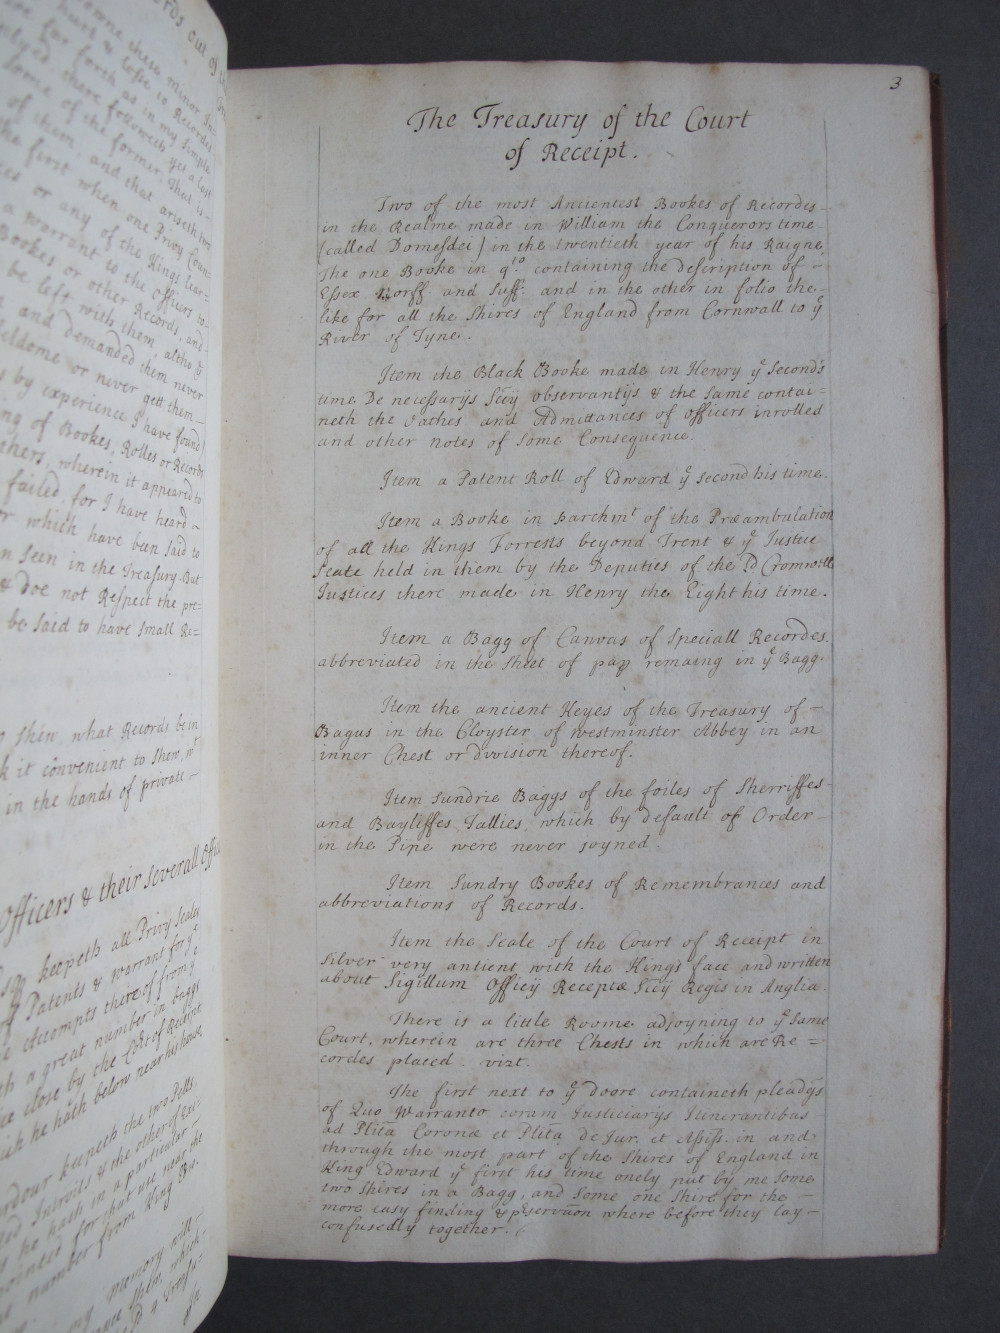 cords out of
downe these minor
hurt & losse to Records
so far forth as in my simple
there followeth yet a last
some of the former. That is
of them, and that ariseth two
the first when one Privy Coun=
or any of the Kings lear=
a warrant to the officers to
Bookes or other Records, and
be left with them, altho ye
and Demanded them never
seldome or never gett them
by experience I have found
of Bookes, Rolles or Records
others, wherein it appeared to
failed, for I have heard
or which have been said to
seen in the Treasury. But
& doe not Respect the pre=
be said to have small Re=
shew what Records be in
it convenient to shew, wt
in the hands of private
Officers & their severall Offi
keepeth all Privy Seales
Patents & warrant for ye
Accompts thereof from ye
a great number in baggs
close by the Cort of Receipt
he hath below near his house
keepeth the two Pells
Introits & the other of Exi=
he hath in a particular
for that use near the
number from King
my memory will
which
3
The Treasury of the Court
of Receipt.
Two of the most Ancientest Bookes of Recordes
in the Realme made in William the Conquerors time
(called Domesdei) in the twentieth year of his Raigne
The one Booke in qto. containing the description of
Essex Norff and Suff: and in the other in folio the
like for all the Shires of England from Cornwall to ye
River of Tyne.
Item the Black Booke made in Henry ye Second's
time De necessarijs Sccij observantijs & the same contai=
neth the Oathes and Admittances of officers inrolled
and other notes of some Consequence.
Item a Patent Roll of Edward ye Second his time.
Item a Booke in parchmt of the Præambulation
of all the Kings Forrests beyond Trent & ye Justice
Seate held in them by the Deputies of the Ld Cromwell
Justices there made in Henry the Eight his time.
Item a Bagg of Canvas of Speciall Recordes
abbreviated in the sheet of papp remaing in ye Bagg.
Item the ancient Keyes of the Treasury of
Bagus in the Cloyster of westminster Abbey in an
inner Chest or division thereof.
Item sundrie Baggs of the foiles of Sherriffes
and Bayliffes Tallies, which by default of Order
in the Pipe were never joyned.
Item Sundry Bookes of Remembrances and
abbreviations of Records.
Item the Seale of the Court of Receipt in
Silver very antient with the Kings face and written
about Sigillum Officij Receptæ Sccij Regis in Anglia.
There is a little Roome adjoyning to ye same
Court, wherein are three Chests in which are Re=
cordes placed. vizt.
The first next to ye doore containeth pleadgs
of Quo Warranto coram Justiciarijs Itinerantibus
ad Plita Coronæ et Plita de Jur. et Assis. in and
through the most part of the Shires of England in
King Edward ye first his time onely put by me some
two Shires in a Bagg, and some one Shire for the
more easy finding & pservaon where before they lay
confusedly together.